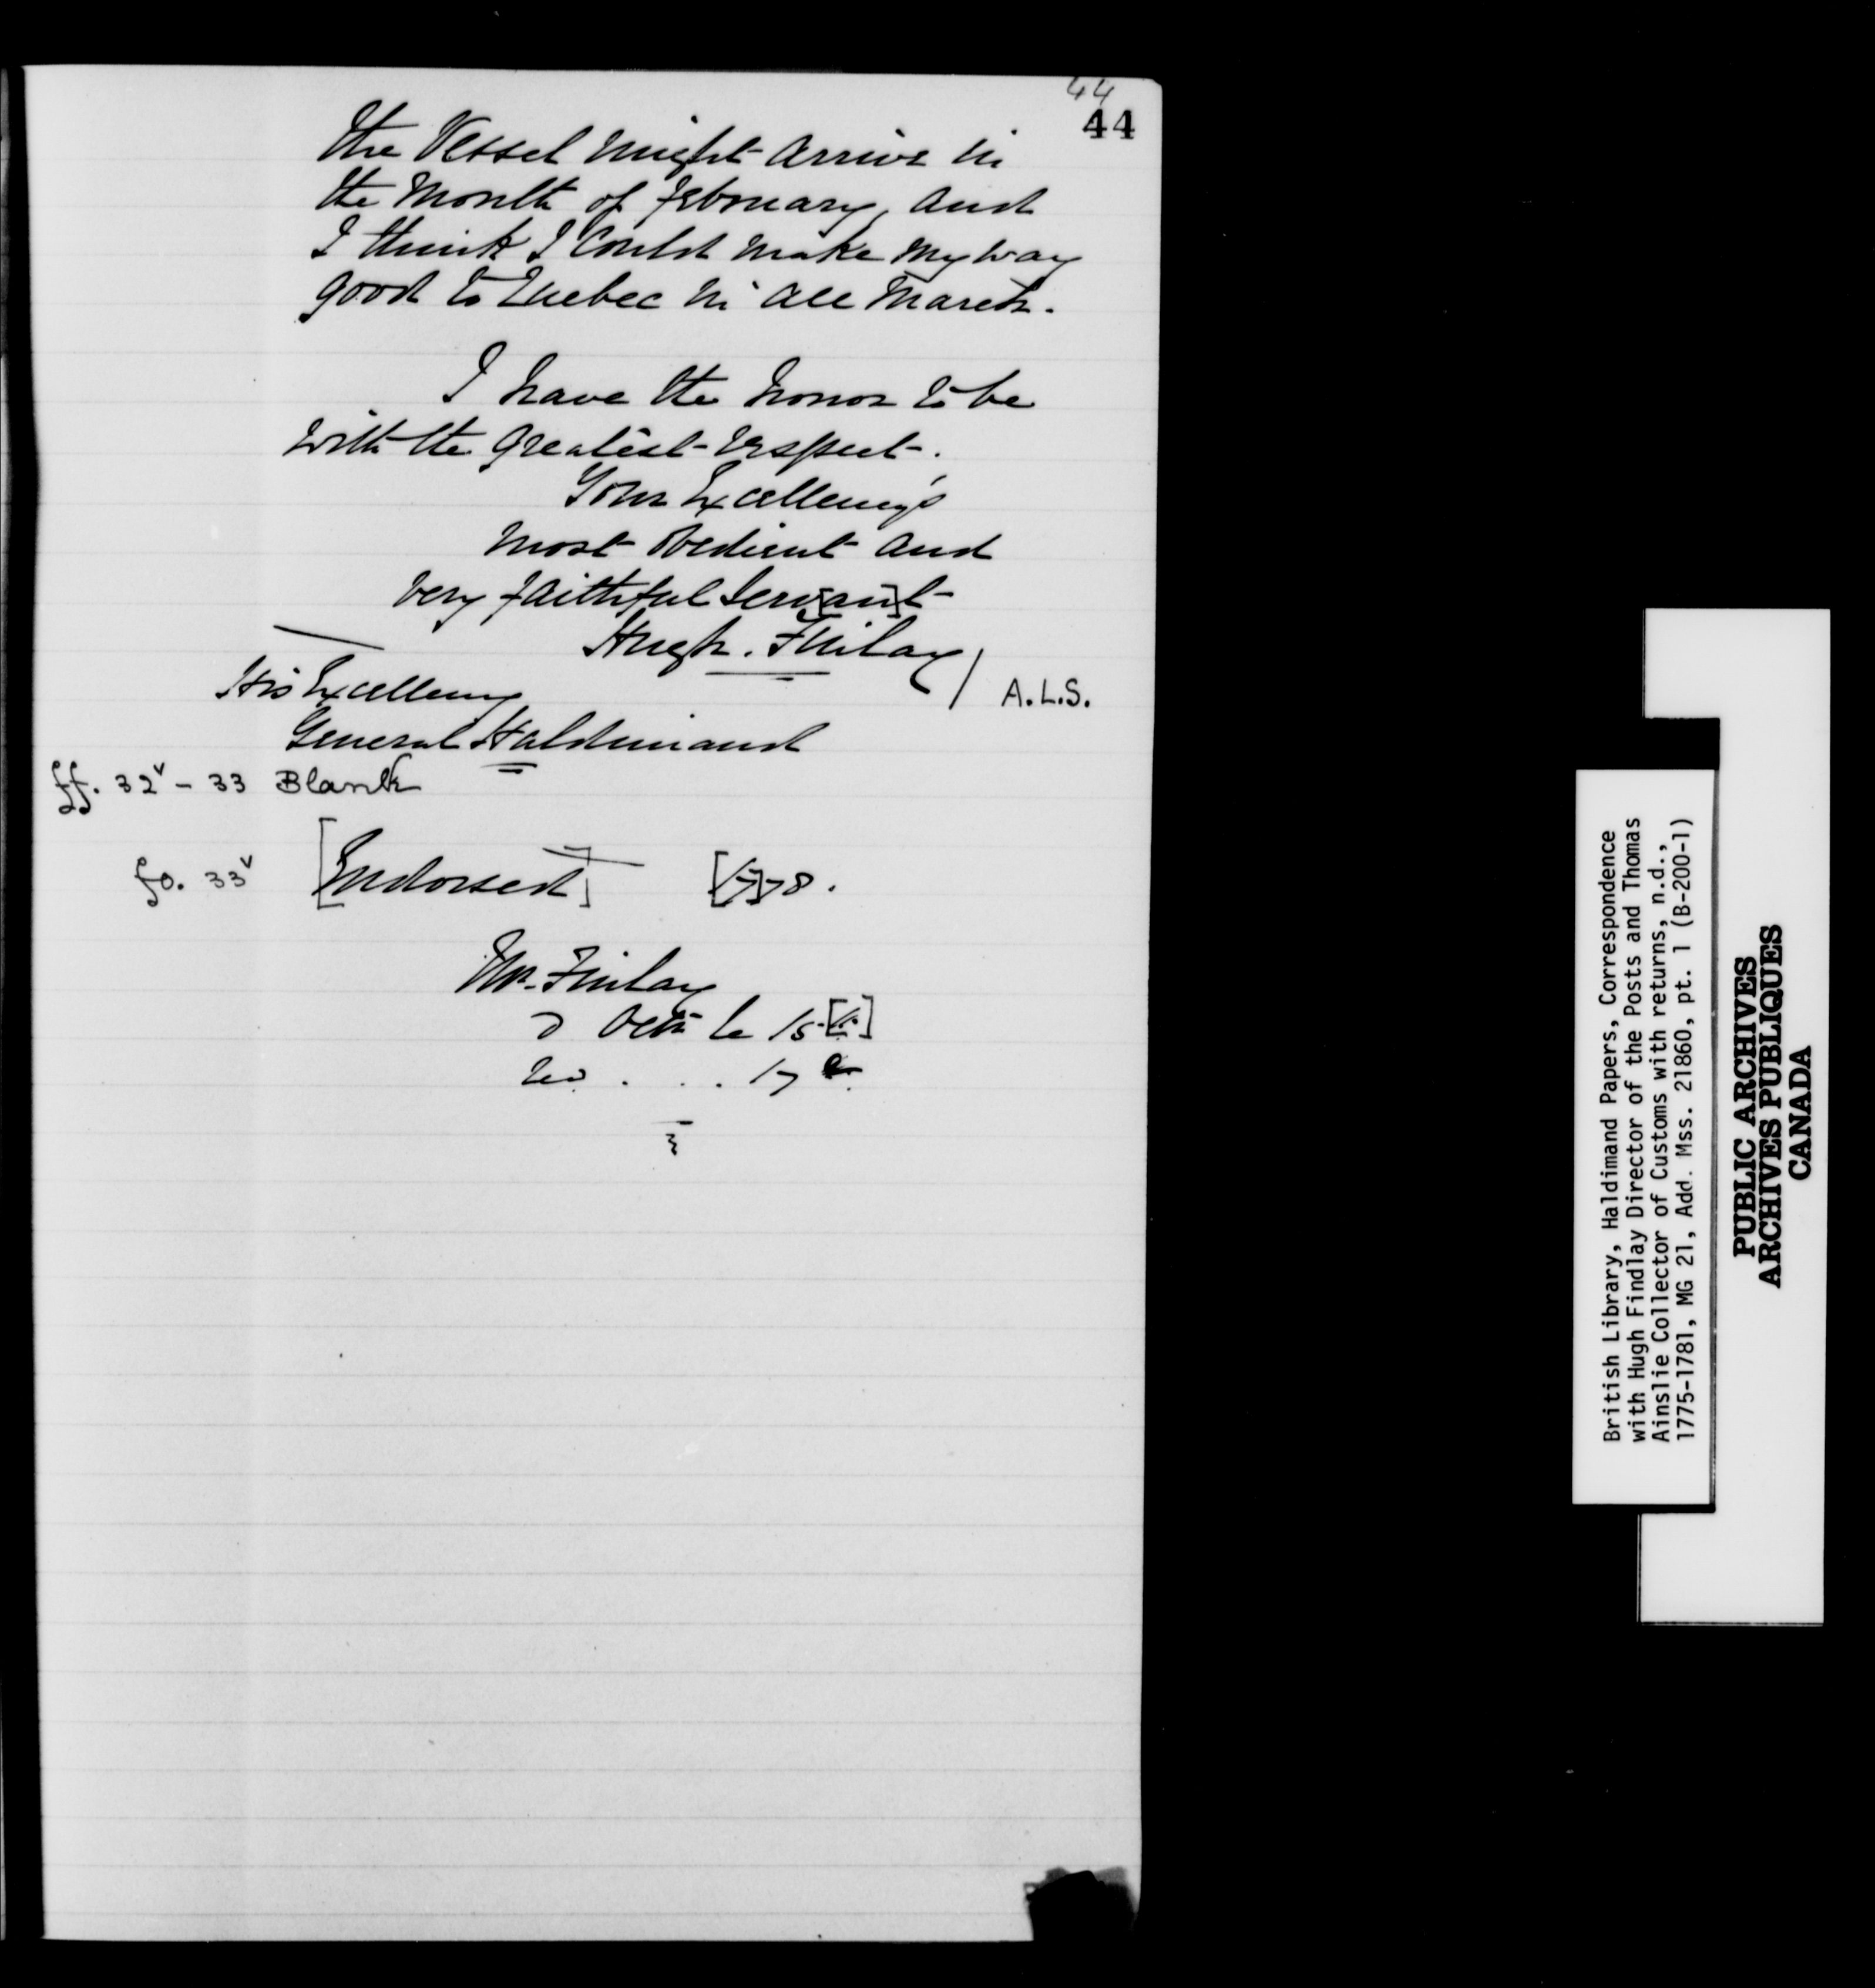 44
44
the Vessel might arrive in
the Month of February, and
I think I Could make my way
good to Quebec in all March.
I have the honor to be
with the greatest respect.
Your Excellency's
most obedient and
very faithful Serv[an]t
Hugh. Finlay
A.L.S.
His Excellency
General Haldimand
ff. 32v - 33 Blank
fo. 33v [Endorsed] [17]78.
Mr. Finlay
le 15
17
British Library, Haldimand Papers, Correspondence
with Hugh Findlay Director of the Posts and Thomas
Ainslie Collector of Customs with returns, n.d.,
1775-1781, MG 21, Add. Mss. 21860, pt. 1 (B-200-1)
PUBLIC ARCHIVES
ARCHIVES PUBLIQUES
CANADA